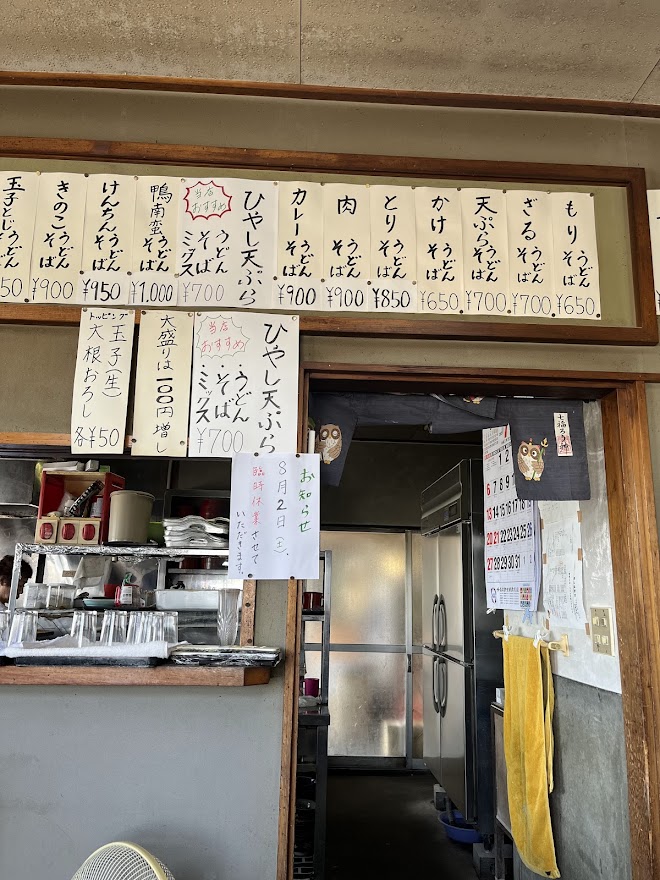 もり うどん そば ¥650
ざる うどん そば ¥700
天ぷら うどん そば ¥700
かけ うどん そば ¥650
とり うどん そば ¥850
肉 うどん そば ¥900
カレー うどん そば ¥900
ひやし天ぷら
当店
おすすめ
うどん
そば
ミックス
¥700
鴨南蛮 うどん そば ¥1,000
けんちん うどん そば ¥950
きのこ うどん そば ¥900
玉子とじ うどん そば 50
ひやし天ぷら
当店
おすすめ
・うどん
・そば
・ミックス
¥700
大盛りは100円増し
トッピング
玉子(生)
大根おろし
各¥50
お知らせ
8月2日(土)、
臨時休業させて
いただきます。
七福ろう神
1 2
6 7 8 9
13 14 15 16
20 21 22 23 24 25 26
27 28 29 30 31